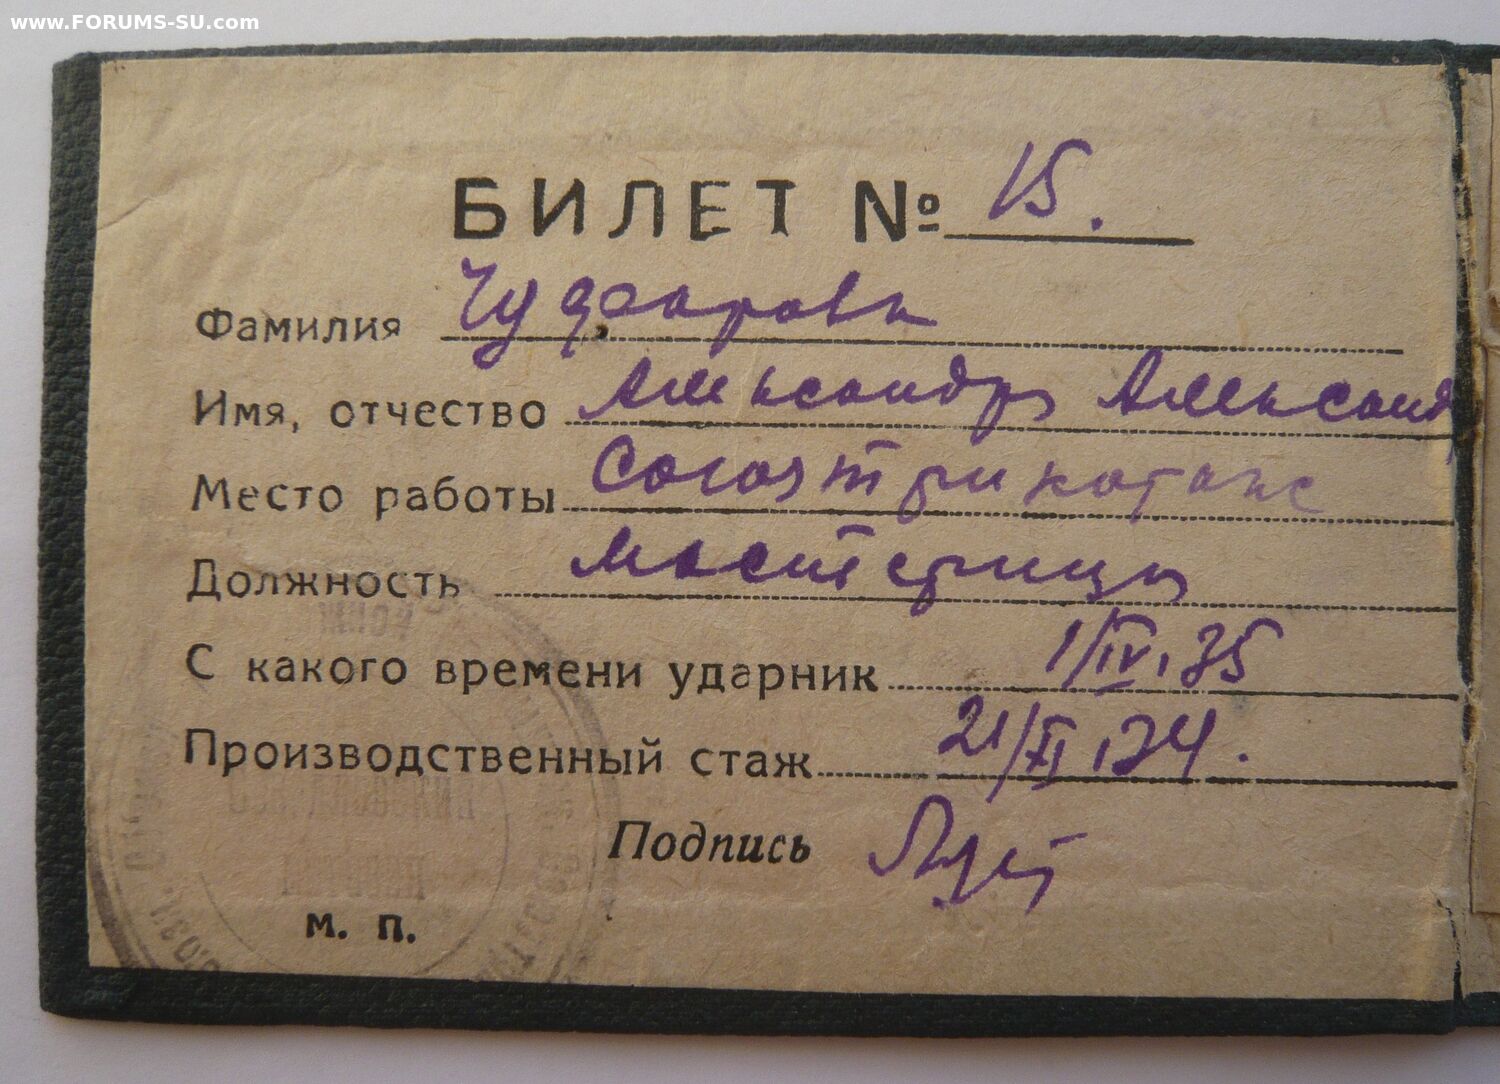 www.FORUMS-SU.com
БИЛЕТ № 15.
Фамилия
Имя, отчество Александра Александр
Место работы Союзтрикотаж
Должность мастерицы
С какого времени ударник 1/IV.35
Производственный стаж 21/XI.34.
Подпись
М. П.